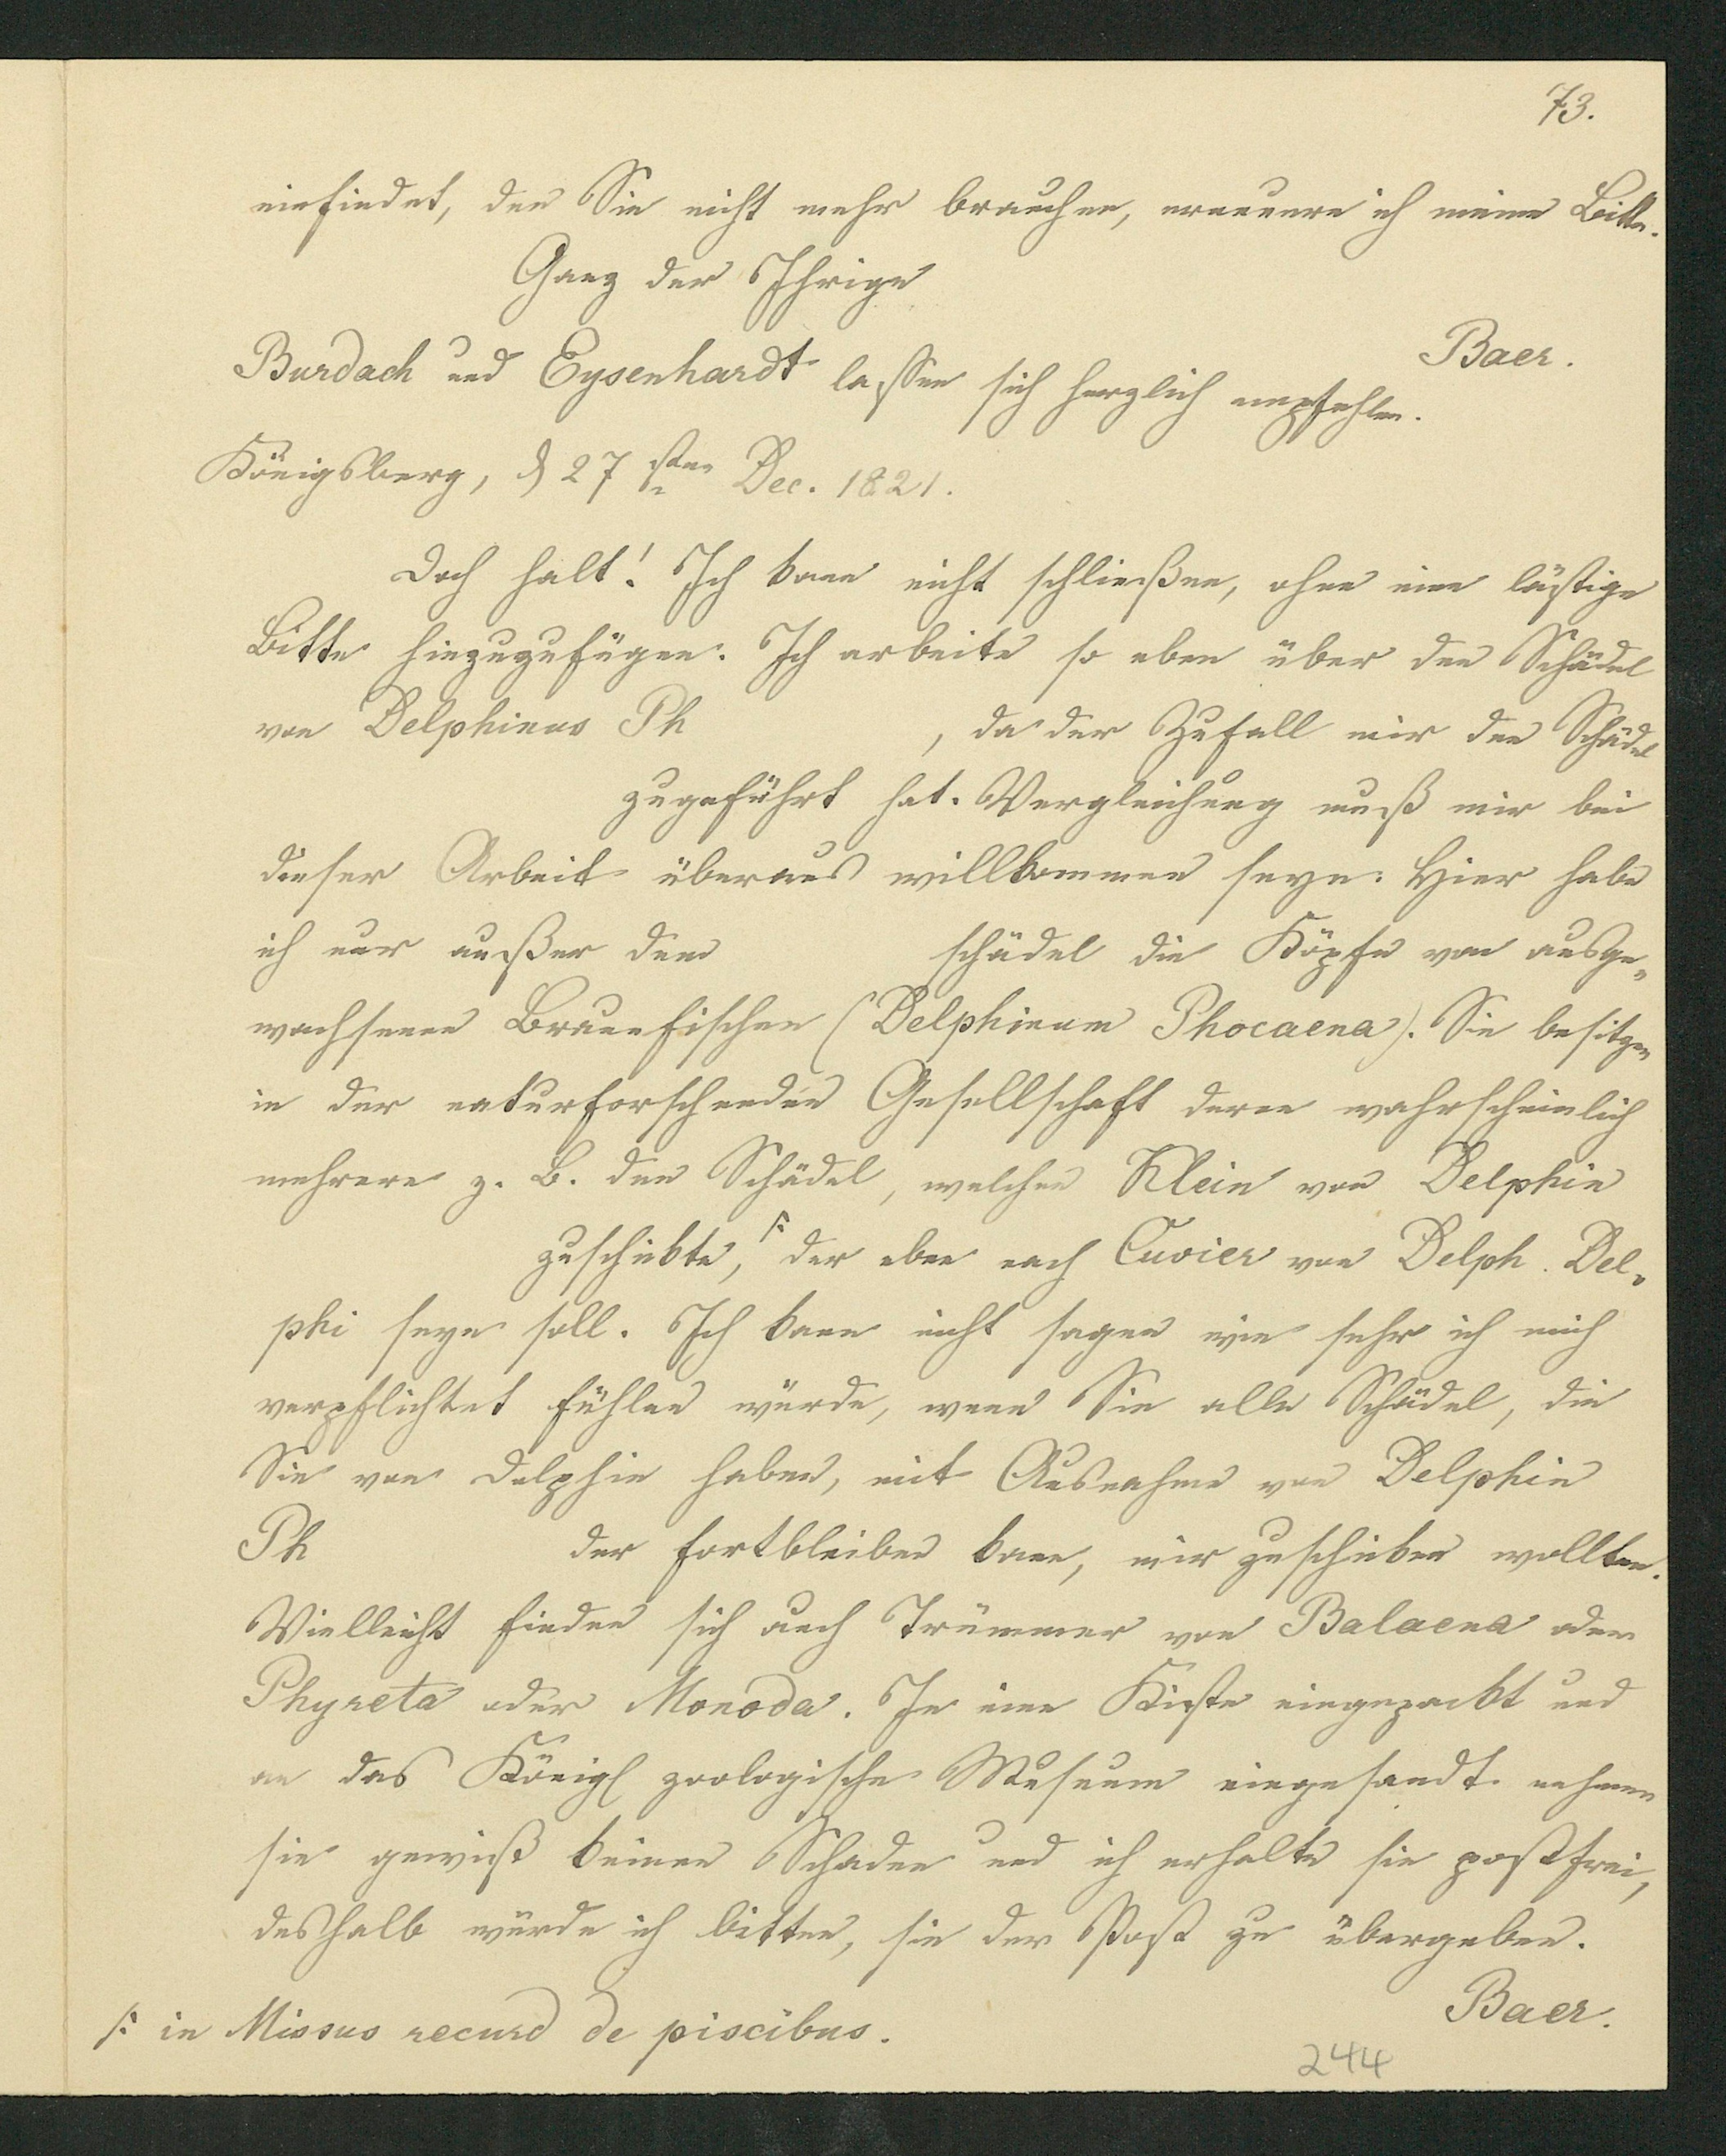 73.
einfindet, den Sie nicht mehr brauchen, erneuere ich meine Bitte.
Ganz der Ihrige
Baer.
Burdach und Eysenhardt lassen sich herzlich empfehlen.
Königsberg, d 27 sten Dec. 1821.
Doch halt! Ich kann nicht schließen, ohne eine lästige
Bitte hinzuzufügen. Ich arbeite so eben über den Schädel
von Delphinus Ph , da der Zufall mir den Schädel
zugeführt hat. Vergleichung muß mir bei
dieser Arbeit überaus willkommen seyn. Hier habe
ich nur außer dem schädel die Köpfe von ausge-
wachsenen Braunfischen (Delphinum Phocaena). Sie besitzen
in der naturforschenden Gesellschaft deren wahrscheinlich
mehrere z. B. den Schädel, welchen Klein von Delphin
zuschickte, /: der eben nach Cuvier von Delph. Del-
phi seyn soll. Ich kann nicht sagen wie sehr ich mich
verpflichtet fühlen würde, wenn Sie alle Schädel, die
Sie von Delphin haben, mit Ausnahme von Delphin
Ph der fortbleiben kann, mir zuschicken wollten.
Vielleicht finden sich auch Trümmer von Balaena oder
Phyreta oder Monoda. In eine Kiste eingepackt und
an das Königl zoologische Museum eingesandt nehmen
sie gewiß keinen Schaden und ich erhalte sie postfrei,
deshalb würde ich bitten, sie der Post zu übergeben.
Baer.
/: in Missus recusd de piscibus.
244